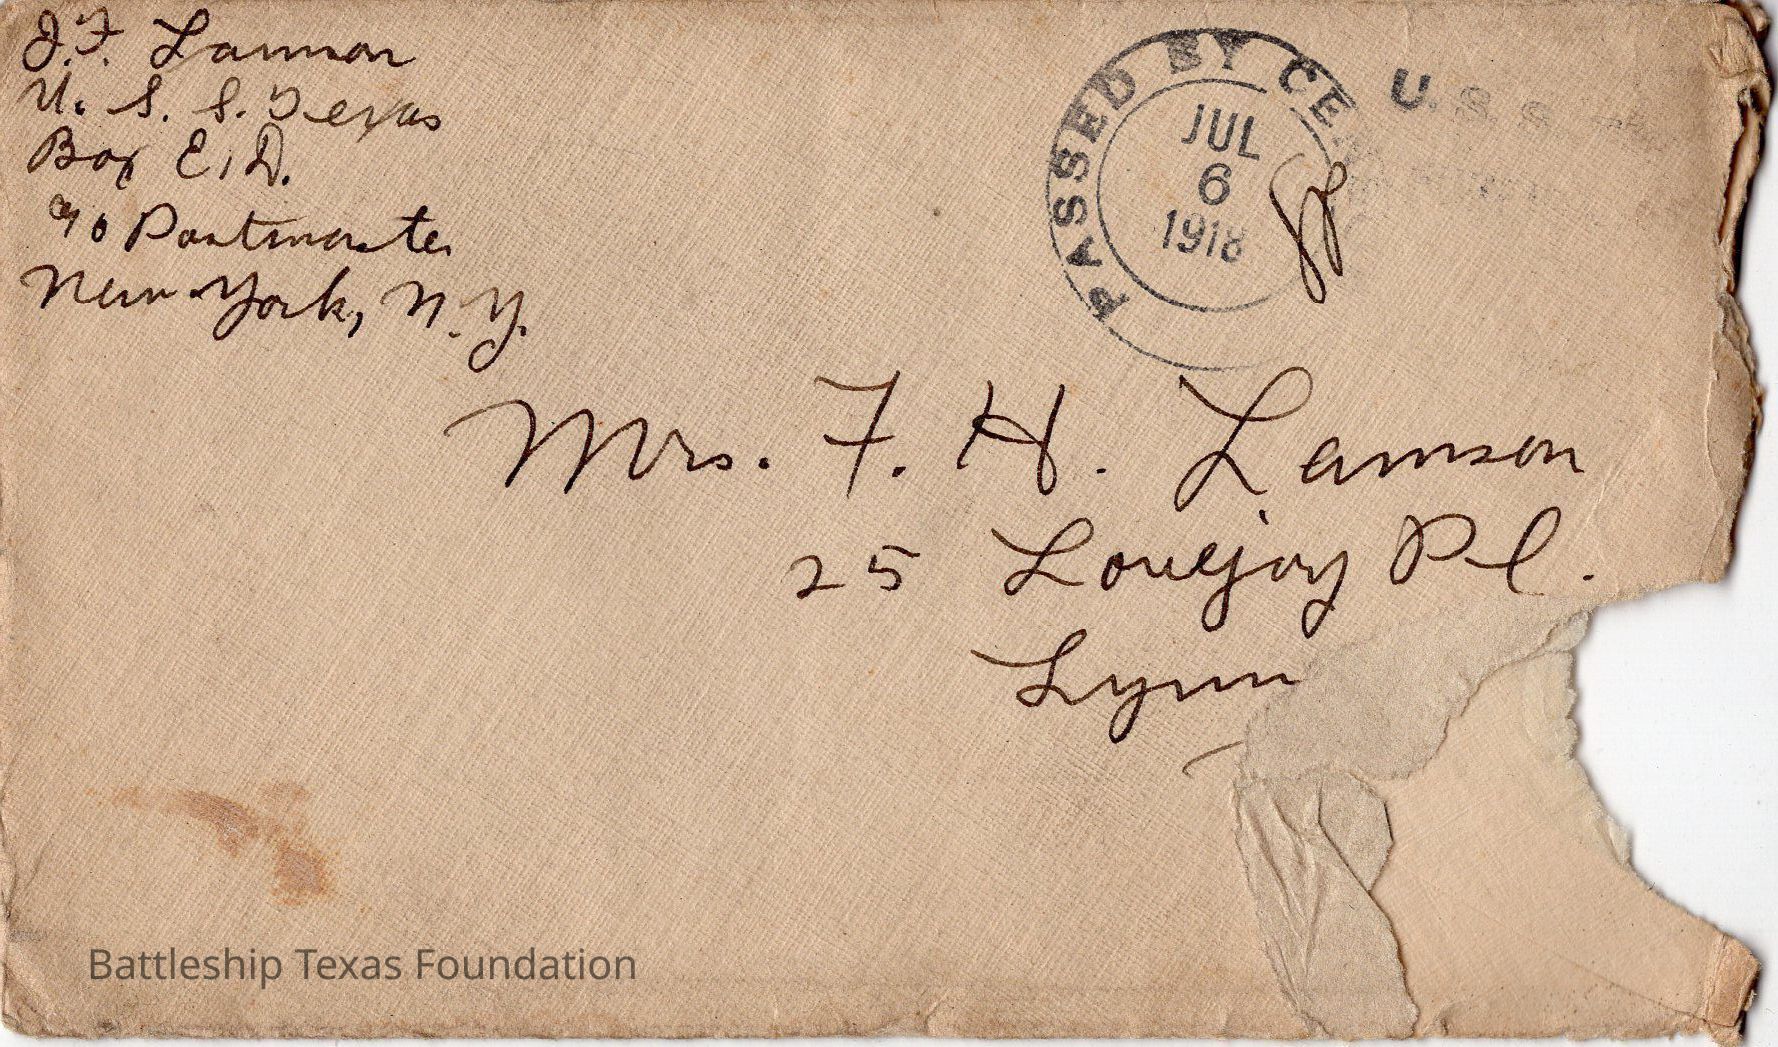 J.F. Lamson
U. S. S. Texas
Box E, D.
c/o Postmaster
New York, N.Y.
PASSED BY CE
JUL
6
1918
U. S. S.
Mrs. F. H. Lamson
25 Lovejoy Pl.
Lynn
Battleship Texas Foundation